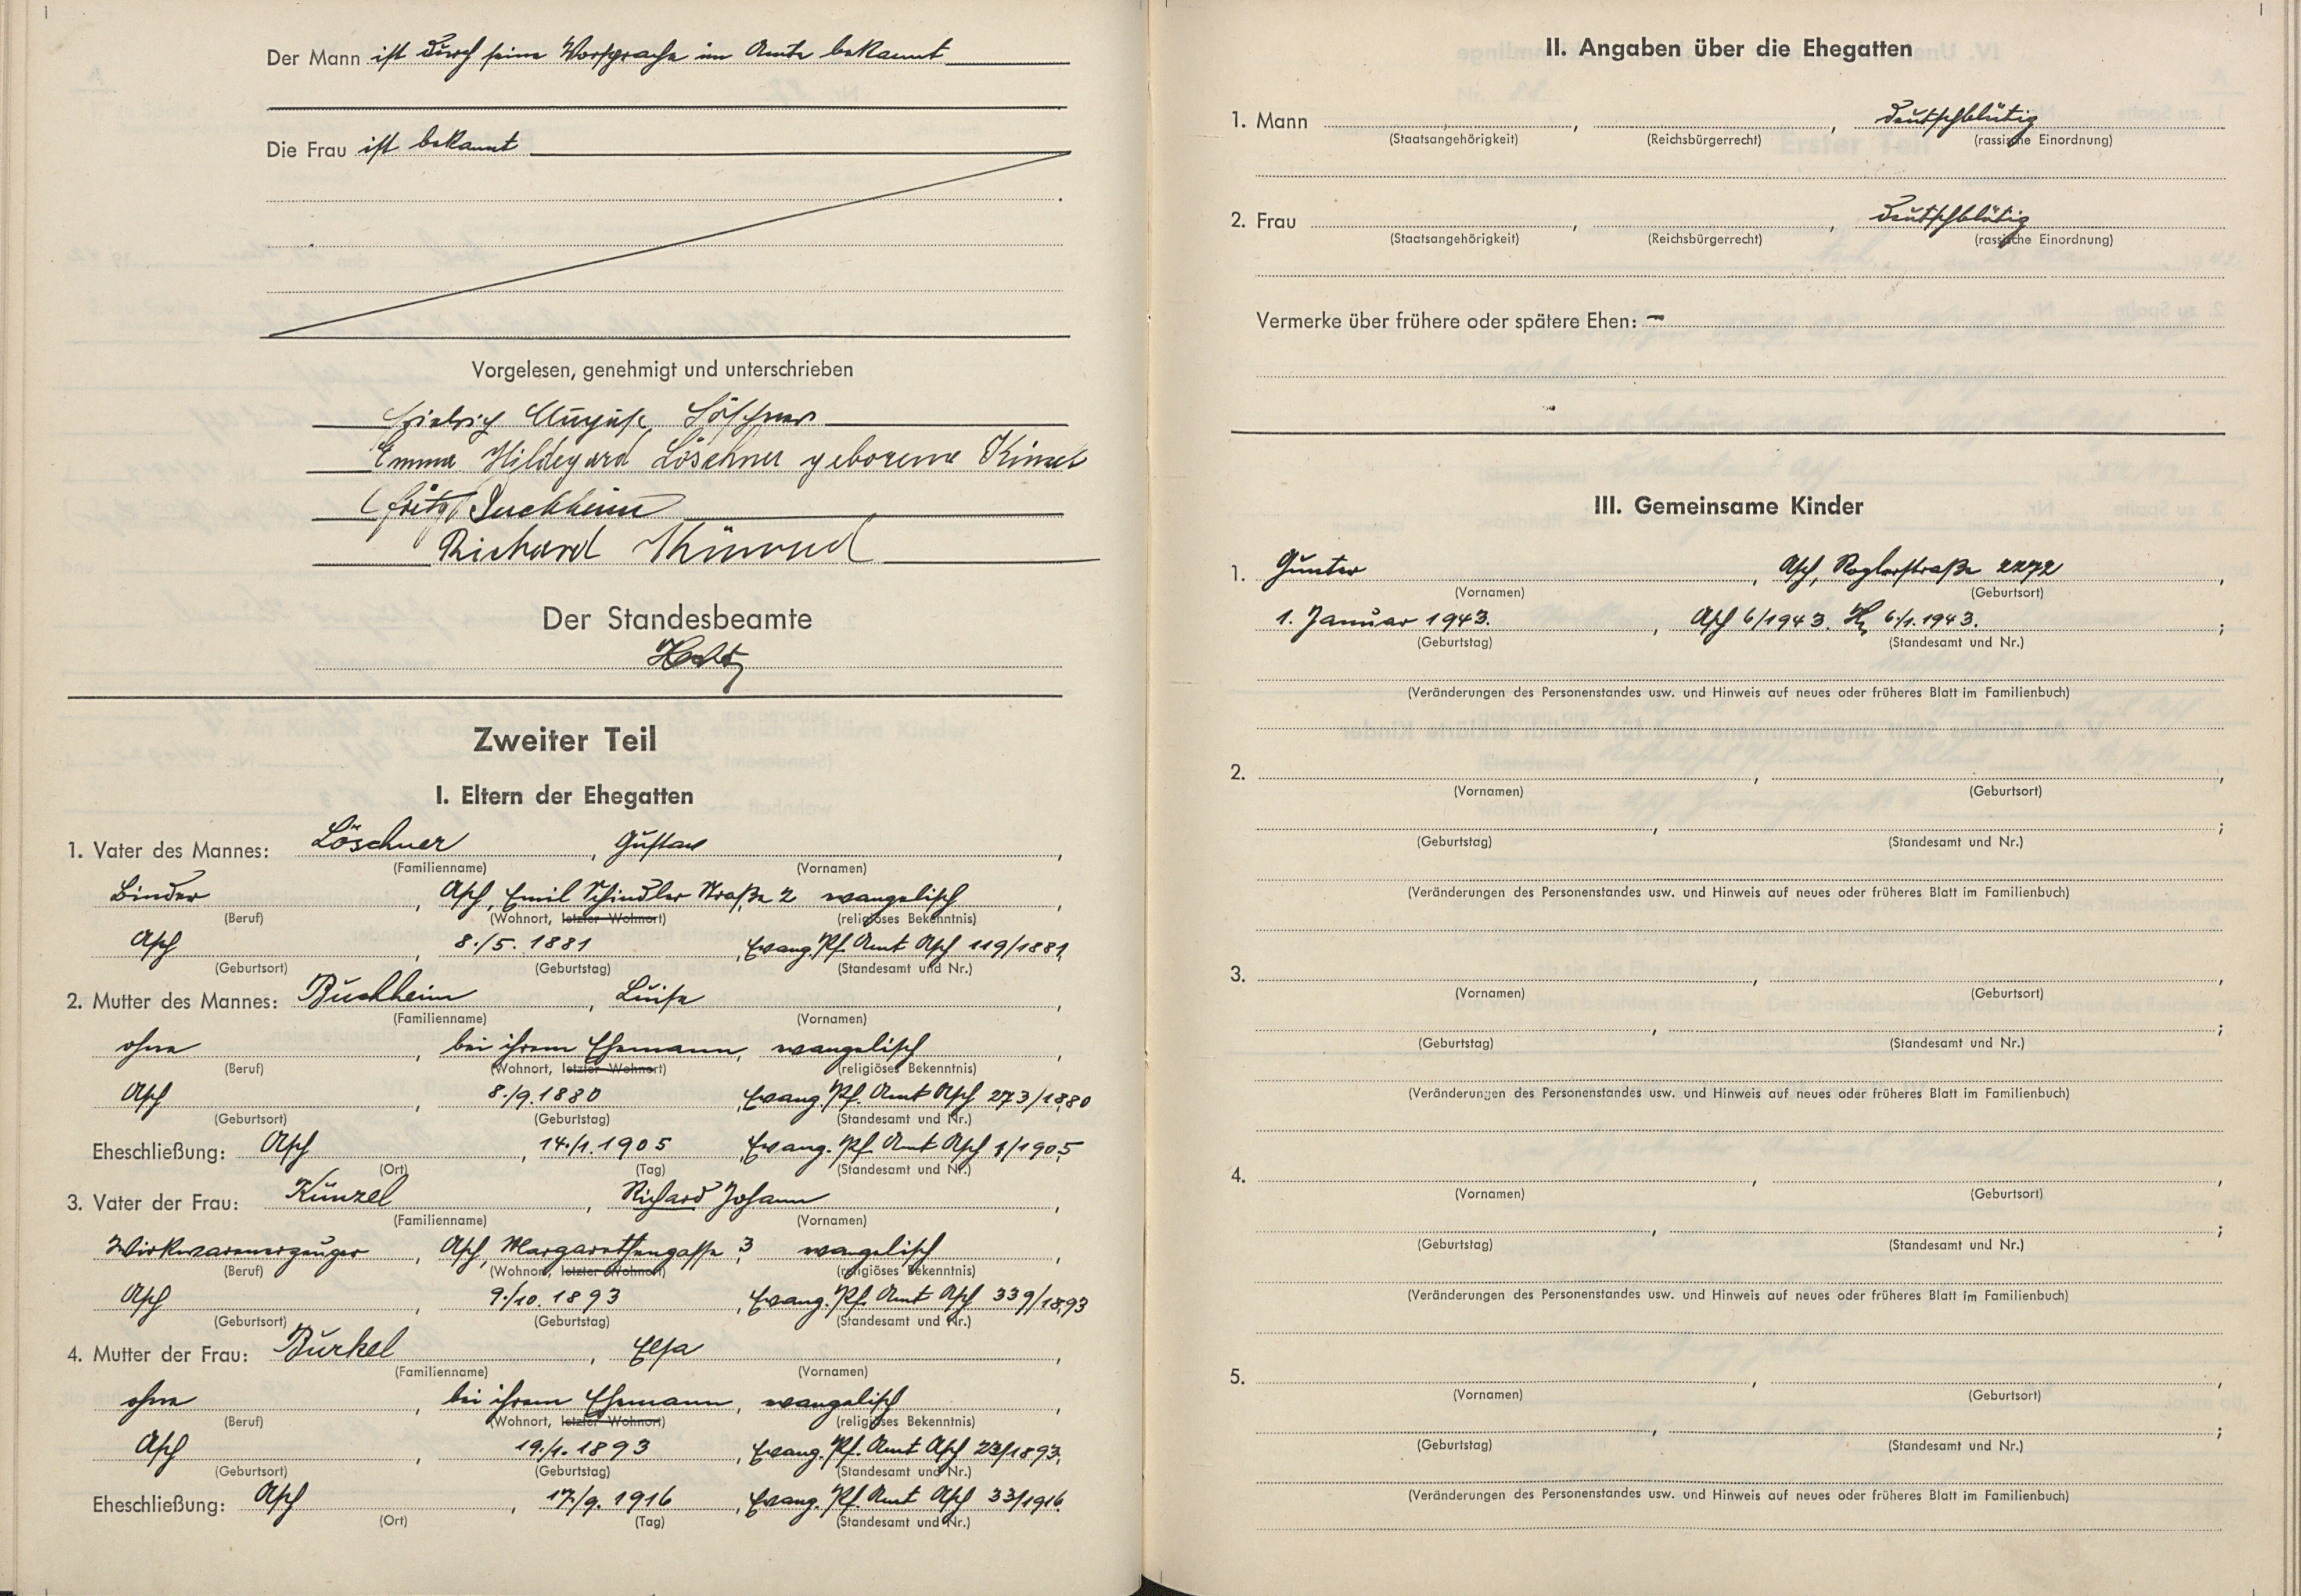 Der Mann ist durch seine Vorsprache im Amte bekannt
Die Frau ist bekannt
Vorgelesen, genehmigt und unterschrieben
August Löschner
Emma Hildegard Löschner geborene Künzel
Fritz Buchheim
Richard Künzel
Der Standesbeamte
Zweiter Teil
I. Eltern der Ehegatten
1. Vater des Mannes: Löschner, Gustav,
(Familienname) (Vornamen)
Binder, Asch, Emil Schindler Straße 2 evangelisch,
(Beruf) (Wohnort, letzter Wohnort) (religiöses Bekenntnis)
Asch, 8./5. 1881, Evang. Pf. Amt Asch 119/1881,
(Geburtsort) (Geburtstag) (Standesamt und Nr.)
2. Mutter des Mannes: Buchheim, Luise,
(Familienname) (Vornamen)
ohne, bei ihrem Ehemann, evangelisch,
(Beruf) (Wohnort, letzter Wohnort) (religiöses Bekenntnis)
Asch, 8./9. 1880, Evang. Pf. Amt Asch 273/1880
(Geburtsort) (Geburtstag) (Standesamt und Nr.)
Eheschließung: Asch, 14./1. 1905, Evang. Pf. Amt Asch 1/1905
(Ort) (Tag) (Standesamt und Nr.)
3. Vater der Frau: Künzel, Richard Johann,
(Familienname) (Vornamen)
Wirkwarenerzeuger, Asch, Margarethengasse 3 evangelisch,
(Beruf) (Wohnort, letzter Wohnort) (religiöses Bekenntnis)
Asch, 9./10. 1893, Evang. Pf. Amt Asch 339/1893
(Geburtsort) (Geburtstag) (Standesamt und Nr.)
4. Mutter der Frau: Burkel, Elsa,
(Familienname) (Vornamen)
ohne, bei ihrem Ehemann, evangelisch,
(Beruf) (Wohnort, letzter Wohnort) (religiöses Bekenntnis)
Asch, 19./1. 1893, Evang. Pf. Amt Asch 23/1893,
(Geburtsort) (Geburtstag) (Standesamt und Nr.)
Eheschließung: Asch, 17./9. 1916, Evang. Pf. Amt Asch 33/1916
(Ort) (Tag) (Standesamt und Nr.)
II. Angaben über die Ehegatten
1. Mann, , deutschblütig
(Staatsangehörigkeit) (Reichsbürgerrecht) (rassische Einordnung)
2. Frau, , deutschblütig
(Staatsangehörigkeit) (Reichsbürgerrecht) (rassische Einordnung)
Vermerke über frühere oder spätere Ehen: -
III. Gemeinsame Kinder
1. Günter, Asch, Roglerstraße 2272,
(Vornamen) (Geburtsort)
1. Januar 1943., Asch 6/1943. 6./1. 1943.;
(Geburtstag) (Standesamt und Nr.)
(Veränderungen des Personenstandes usw. und Hinweis auf neues oder früheres Blatt im Familienbuch)
2. , ,
(Vornamen) (Geburtsort)
, ;
(Geburtstag) (Standesamt und Nr.)
(Veränderungen des Personenstandes usw. und Hinweis auf neues oder früheres Blatt im Familienbuch)
3. , ,
(Vornamen) (Geburtsort)
, ;
(Geburtstag) (Standesamt und Nr.)
(Veränderungen des Personenstandes usw. und Hinweis auf neues oder früheres Blatt im Familienbuch)
4. , ,
(Vornamen) (Geburtsort)
, ;
(Geburtstag) (Standesamt und Nr.)
(Veränderungen des Personenstandes usw. und Hinweis auf neues oder früheres Blatt im Familienbuch)
5. , ,
(Vornamen) (Geburtsort)
, ;
(Geburtstag) (Standesamt und Nr.)
(Veränderungen des Personenstandes usw. und Hinweis auf neues oder früheres Blatt im Familienbuch)